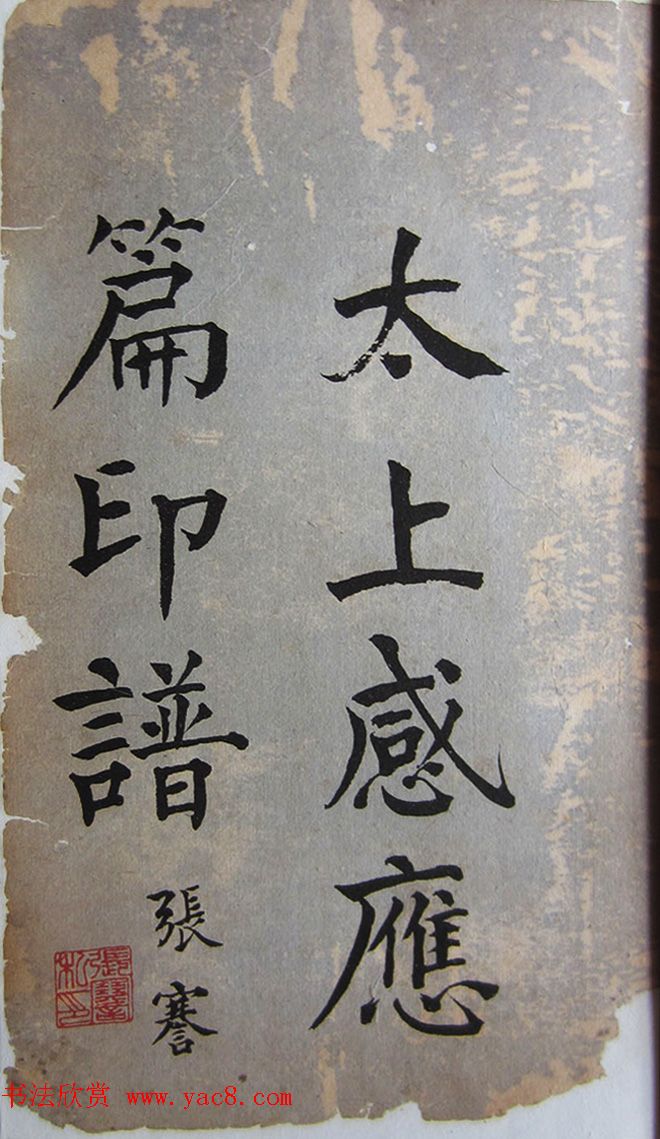 太上感應
篇印譜
張謇
張謇私印
书法欣赏 www.yac8.com